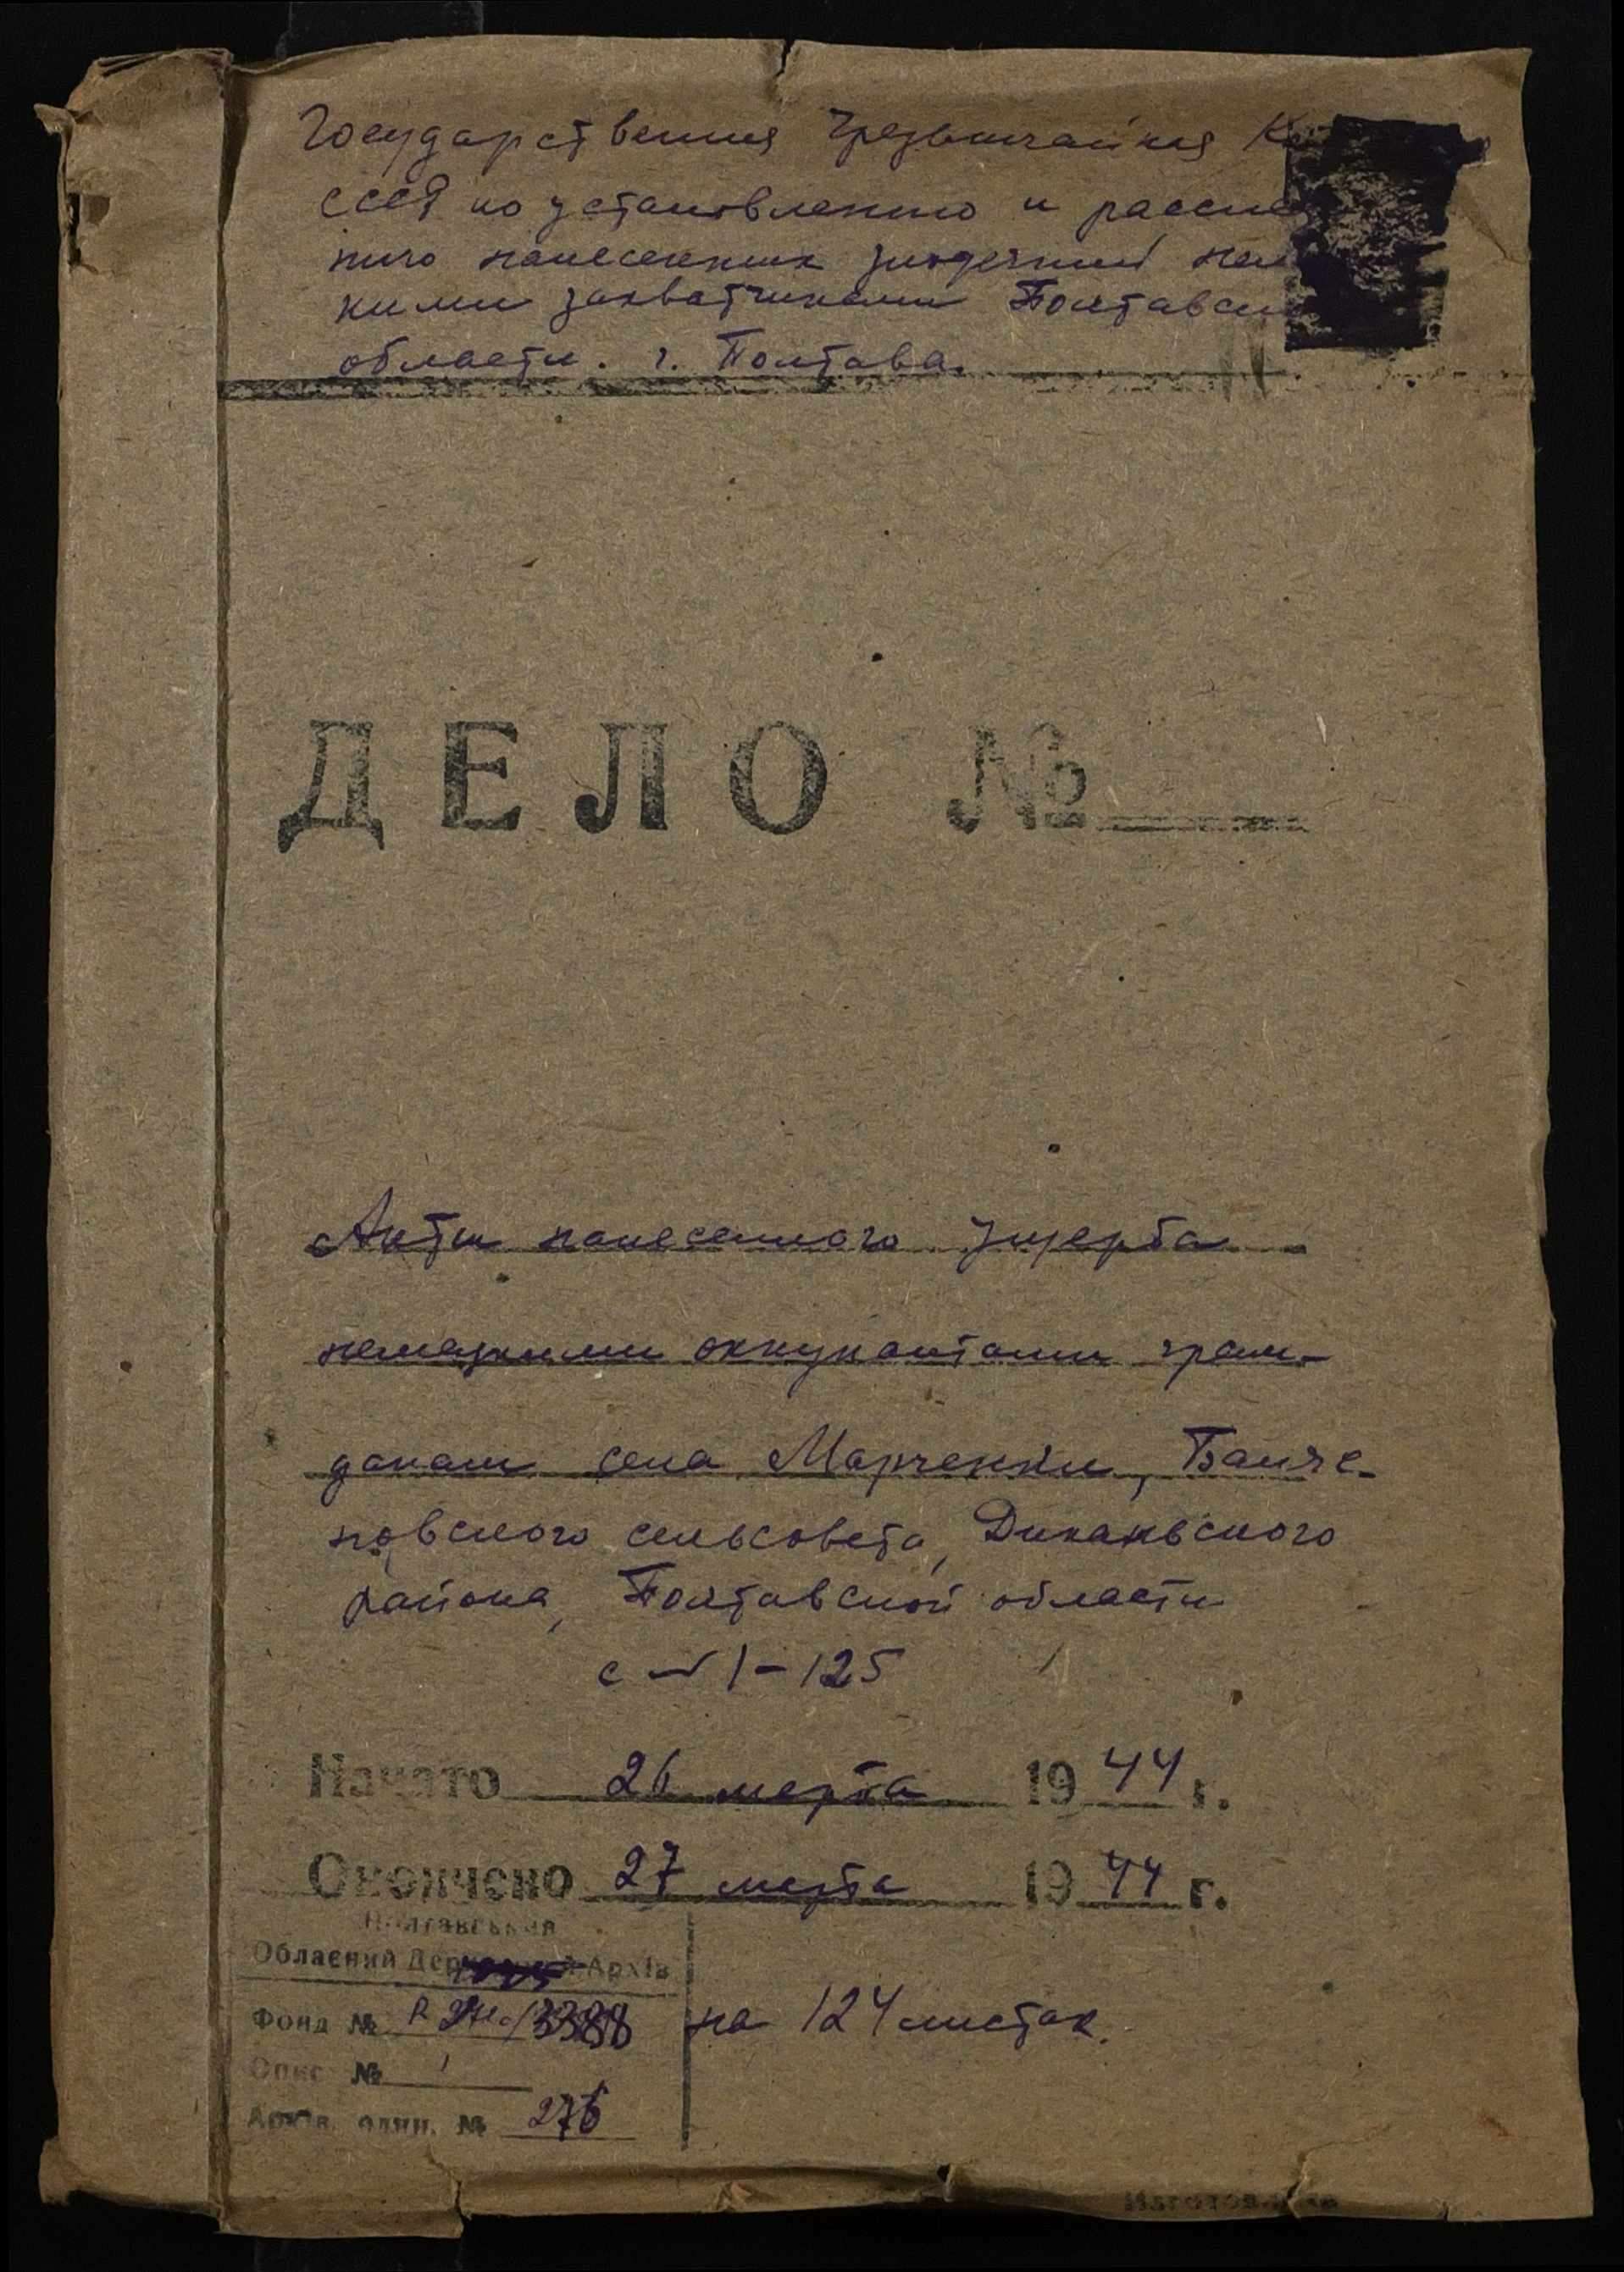 Государственния Чрезвычайния К
СССР по установлению и рассле
нию нанесенних злодеяний нем
кими захватчиками Полтавск
области. г. Полтава.
ДЕЛО №
Акти нанесенного ущерба
немецкими оккупантами граж-
данам села Марченки, Банче-
повского сельсовета, Диканьского
района, Полтавской области
с № 1-125
Начато 26 марта 1944 г.
Окончено 27 марта 1944 г.
Полтавський
Обласний Державний Архів
Фонд № R 3388
Опис № 1
Архів. один. № 276
на 124 листах.